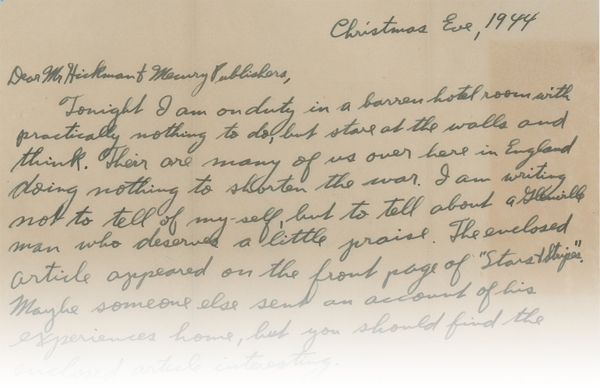 Christmas Eve, 1944
Dear Mr Hickman & Mercury Publishers,
Tonight I am on duty in a barren hotel room with
practically nothing to do, but stare at the walls and
think. Their are many of us over here in England
doing nothing to shorten the war. I am writing
not to tell of my-self, but to tell about a Glenville
man who deserves a little praise. The enclosed
article appeared on the front page of "Stars & Stripes".
Maybe someone else sent an account of his
experiences home, but you should find the
enclosed article interesting.